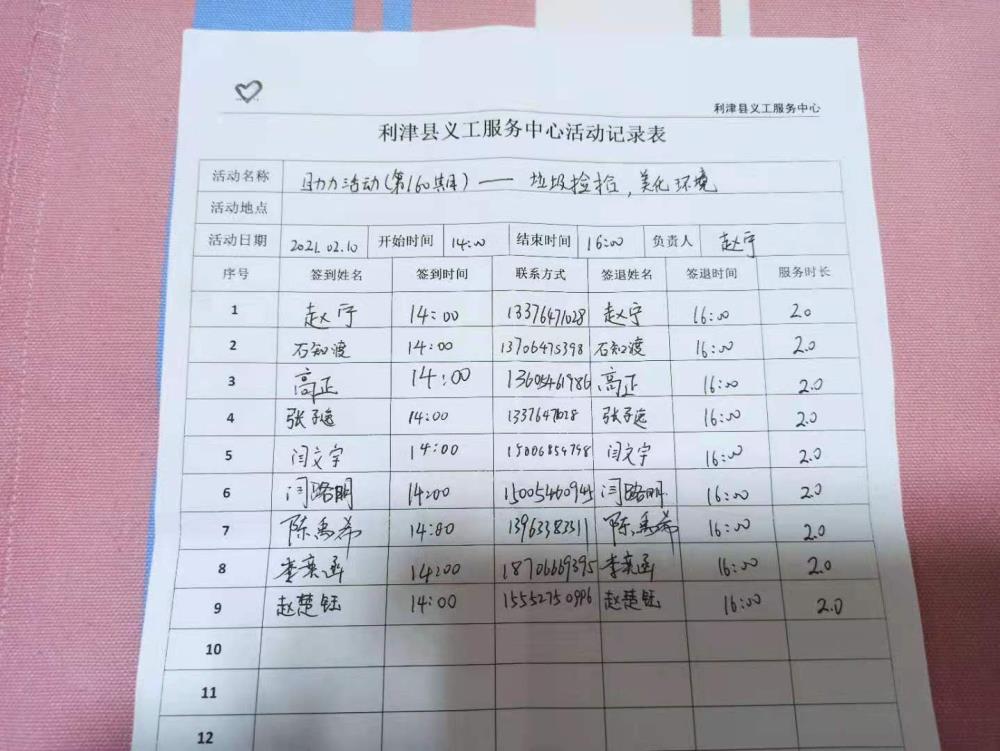 利津县义工服务中心
利津县义工服务中心活动记录表
活动名称 助力活动(第160期) —— 垃圾捡拾,美化环境
活动地点
活动日期 2021.02.10 开始时间 14:00 结束时间 16:00 负责人 赵宁
序号 签到姓名 签到时间 联系方式 签退姓名 签退时间 服务时长
1 赵宁 14:00 13376471028 赵宁 16:00 2.0
2 石知渡 14:00 13706475398 石知渡 16:00 2.0
3 高正 14:00 13605461986 高正 16:00 2.0
4 张子逸 14:00 13376471028 张子逸 16:00 2.0
5 闫文宇 14:00 15006854798 闫文宇 16:00 2.0
6 闫路明 14:00 15005460945 闫路明 16:00 2.0
7 陈禹希 14:00 13963383311 陈禹希 16:00 2.0
8 李奕函 14:00 18706669395 李奕函 16:00 2.0
9 赵楚钰 14:00 15552750996 赵楚钰 16:00 2.0
10
11
12